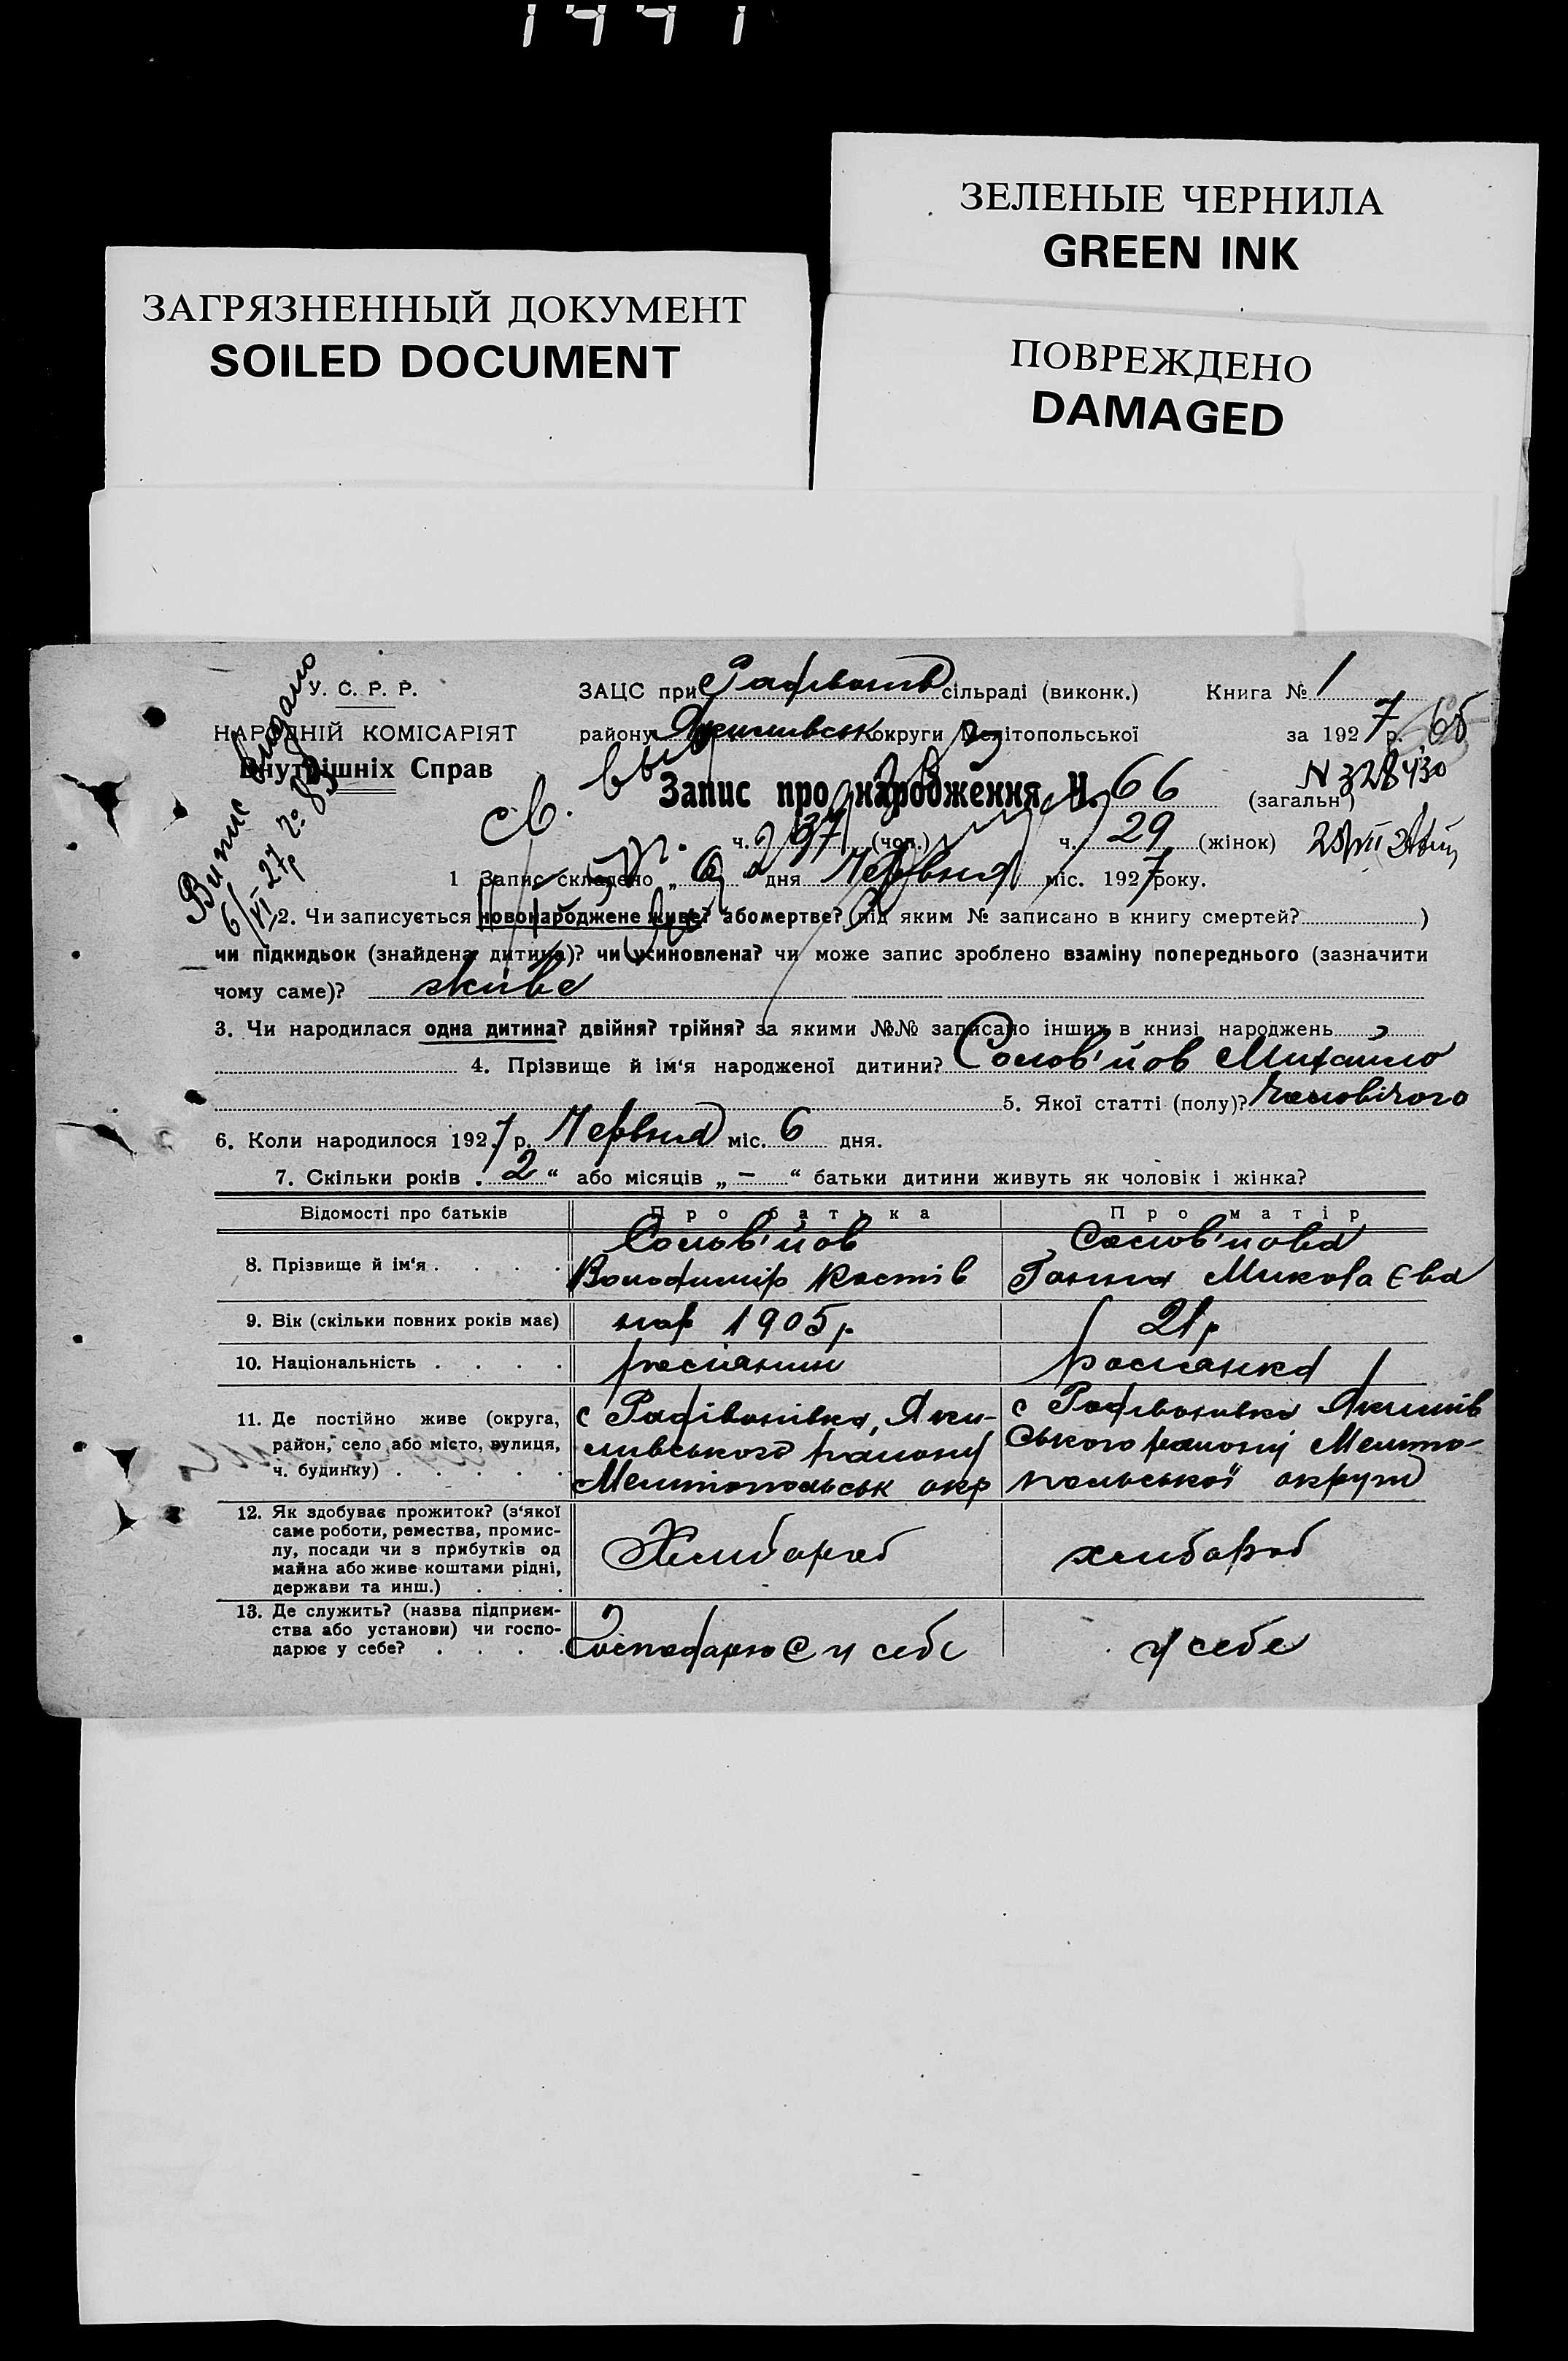 ЗЕЛЕНЫЕ ЧЕРНИЛА
GREEN INK
ЗАГРЯЗНЕННЫЙ ДОКУМЕНТ
SOILED DOCUMENT
ПОВРЕЖДЕНО
DAMAGED
У. С. Р. Р.
НАРОДНІЙ КОМІСАРІЯТ
Внутрішніх Справ
Випис видано
6/VI 27р № 83
ЗАЦС при Радівонів сільраді (виконк.) Книга № 1
району Якимівськ округи Мелітопольської за 1927 р. 66
Запис про народження Ч. 66 (загальн)
N 328430
ч. 37 (чол.) ч. 29 (жінок)
1 Запис складено „ 6 “ дня Червня міс. 1927 року.
2. Чи записується новонароджене живе? або мертве? (під яким № записано в книгу смертей? )
чи підкидьок (знайдена дитина)? чи усиновлена? чи може запис зроблено взаміну попереднього (зазначити
чому саме)? живе
3. Чи народилася одна дитина? двійня? трійня? за якими №№ записано інших в книзі народжень
4. Прізвище й ім‘я народженої дитини? Солов'йов Михайло
5. Якої статті (полу)? чоловічого
6. Коли народилося 1927 р. Червня міс. 6 дня.
7. Скільки років „ 2 “ або місяців „ – “ батьки дитини живуть як чоловік і жінка?
Відомості про батьків Про батька Про матір
8. Прізвище й ім‘я . . . . Солов'йов Володимір Костів Солов'йова Ганна Микола Єва
9. Вік (скільки повних років має) нар 1905р. 21р
10. Національність . . . . росіянин росіянка
11. Де постійно живе (округа, с Радівонівка, Яки- с Радивонивка Якимів
район, село або місто, вулиця, мивського району ського району Мелито-
ч. будинку) . . . . . Мелитопольськ окр польської округи
12. Як здобуває прожиток? (з‘якої
саме роботи, ремества, промис-
лу, посади чи з прибутків од Хлибороб хлибороб
майна або живе коштами рідні,
держави та инш.) . . .
13. Де служить? (назва підприєм-
ства або установи) чи госпо-
дарює у себе? . . . . Господарює у себе у себе